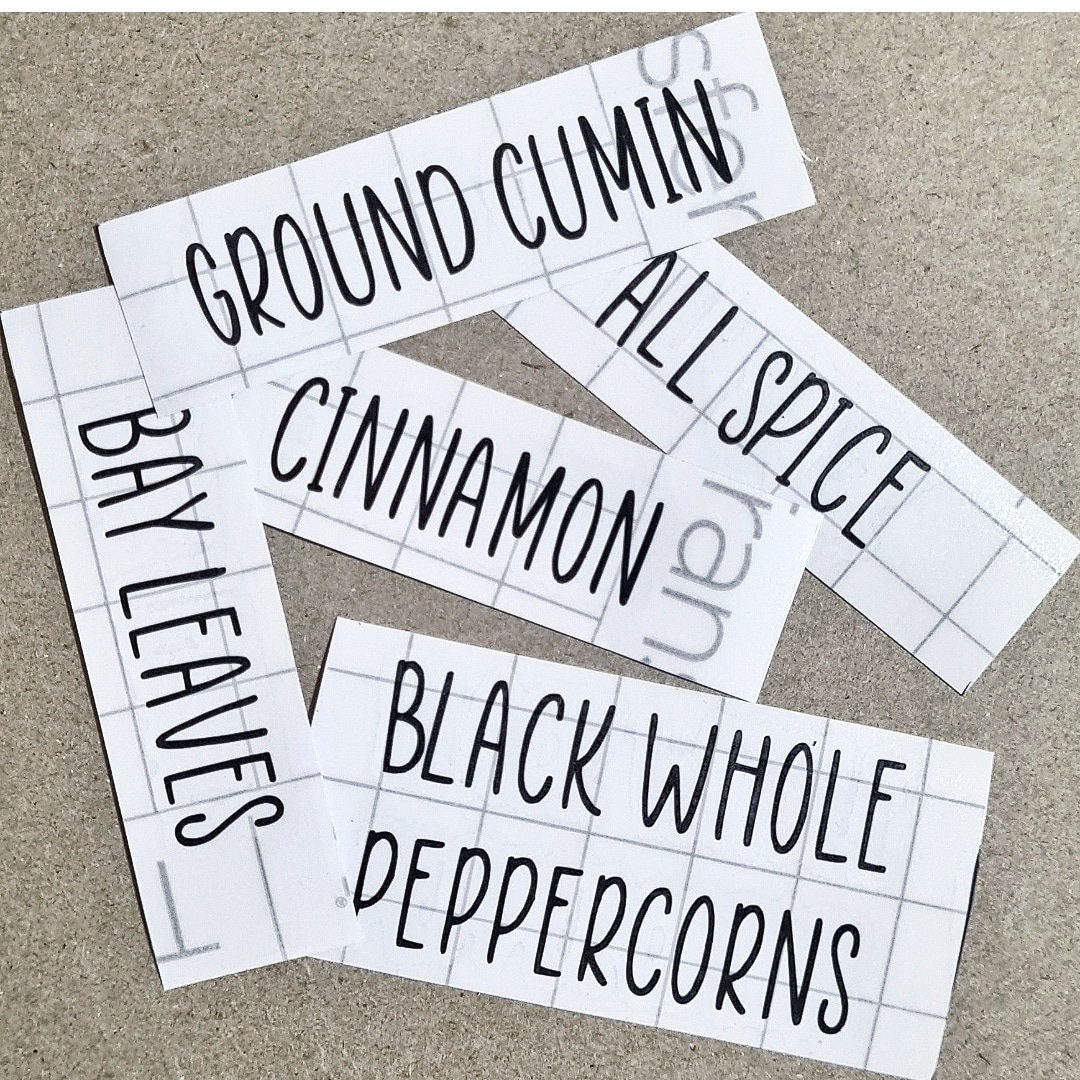 GROUND CUMIN
ALL SPICE
CINNAMON
BAY LEAVES
BLACK WHOLE
PEPPERCORNS
sfer
ran
T